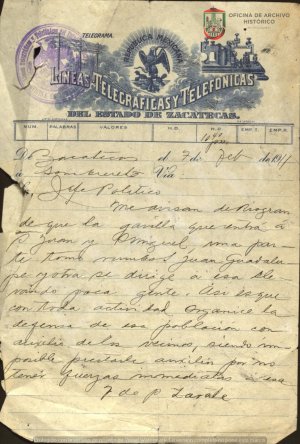 OFICINA DE ARCHIVO
HISTÓRICO
TELEGRAMA.
REPUBLICA MEXICANA
LINEAS TELEGRÁFICAS Y TELEFÓNICAS
DEL ESTADO DE ZACATECAS.
NUM. PALABRAS VALORES N.D. H.D. EMP. T. EMP. R.
D Zacatecas el 7 de Feb de 1911
a Sombrerete Via
Jefe Politico
Me avisan de
de que la gavilla que entró á
S. Juan y S. Miguel una par
te tomó rumbo S. Juan Guadalu
pe y otra se dirige á esa lle
vando poca gente. Asi es que
con toda actividad organice la
defensa de esa poblacion con
auxilio de los vecinos, siendo im
posible prestarle auxilio por no
tener fuerzas inmediatas á esa
F. de P. Zarate